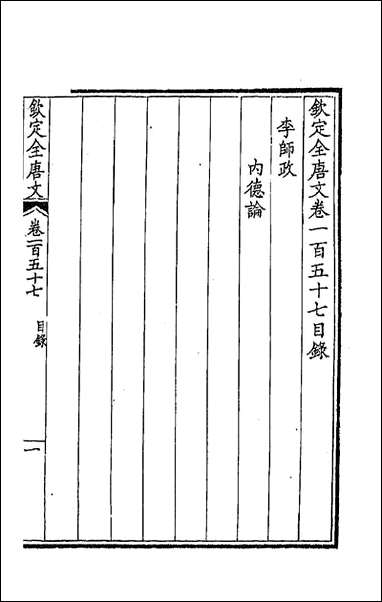 欽定全唐文卷一百五十七目錄
李師政
内德論
欽定全唐文
卷一百五十七
目錄
一